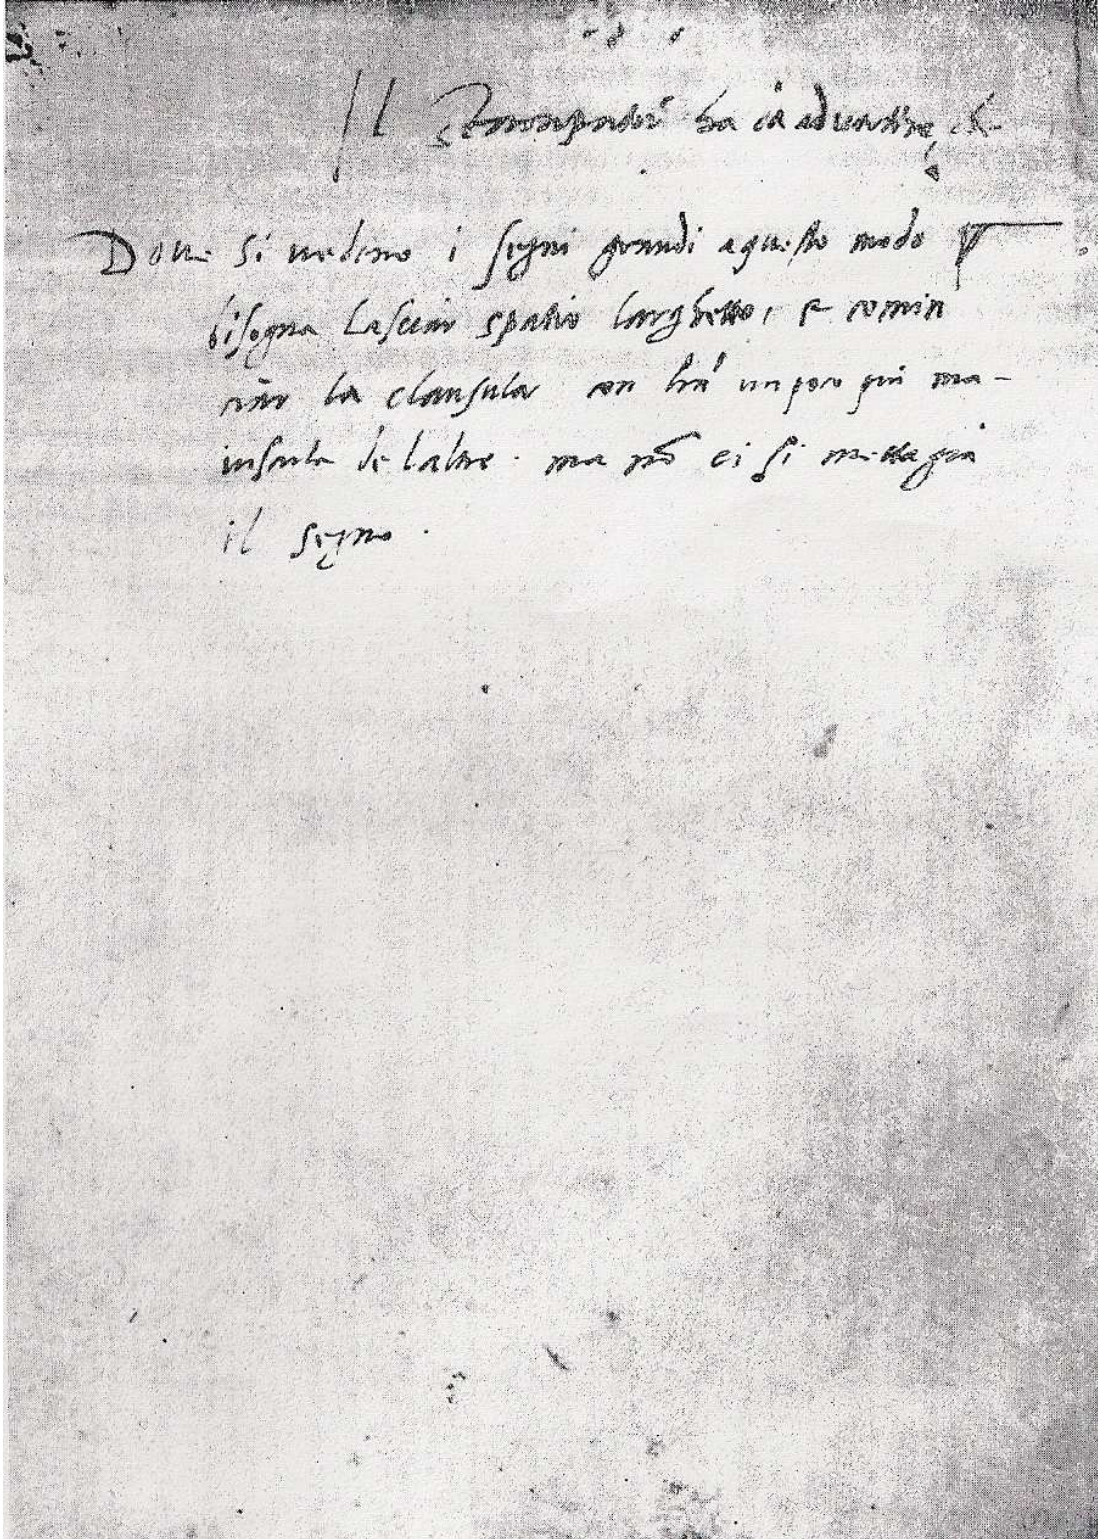 Il ha da advertire, che
Doue si uedeno i segni grandi aquesto modo ¶
bisogna lasciar spatio larghetto, e comin
ciar la clausula con lr̃a un poco piu ma-
iuscula de laltre. ma nõ ci si metta gia
il segno.